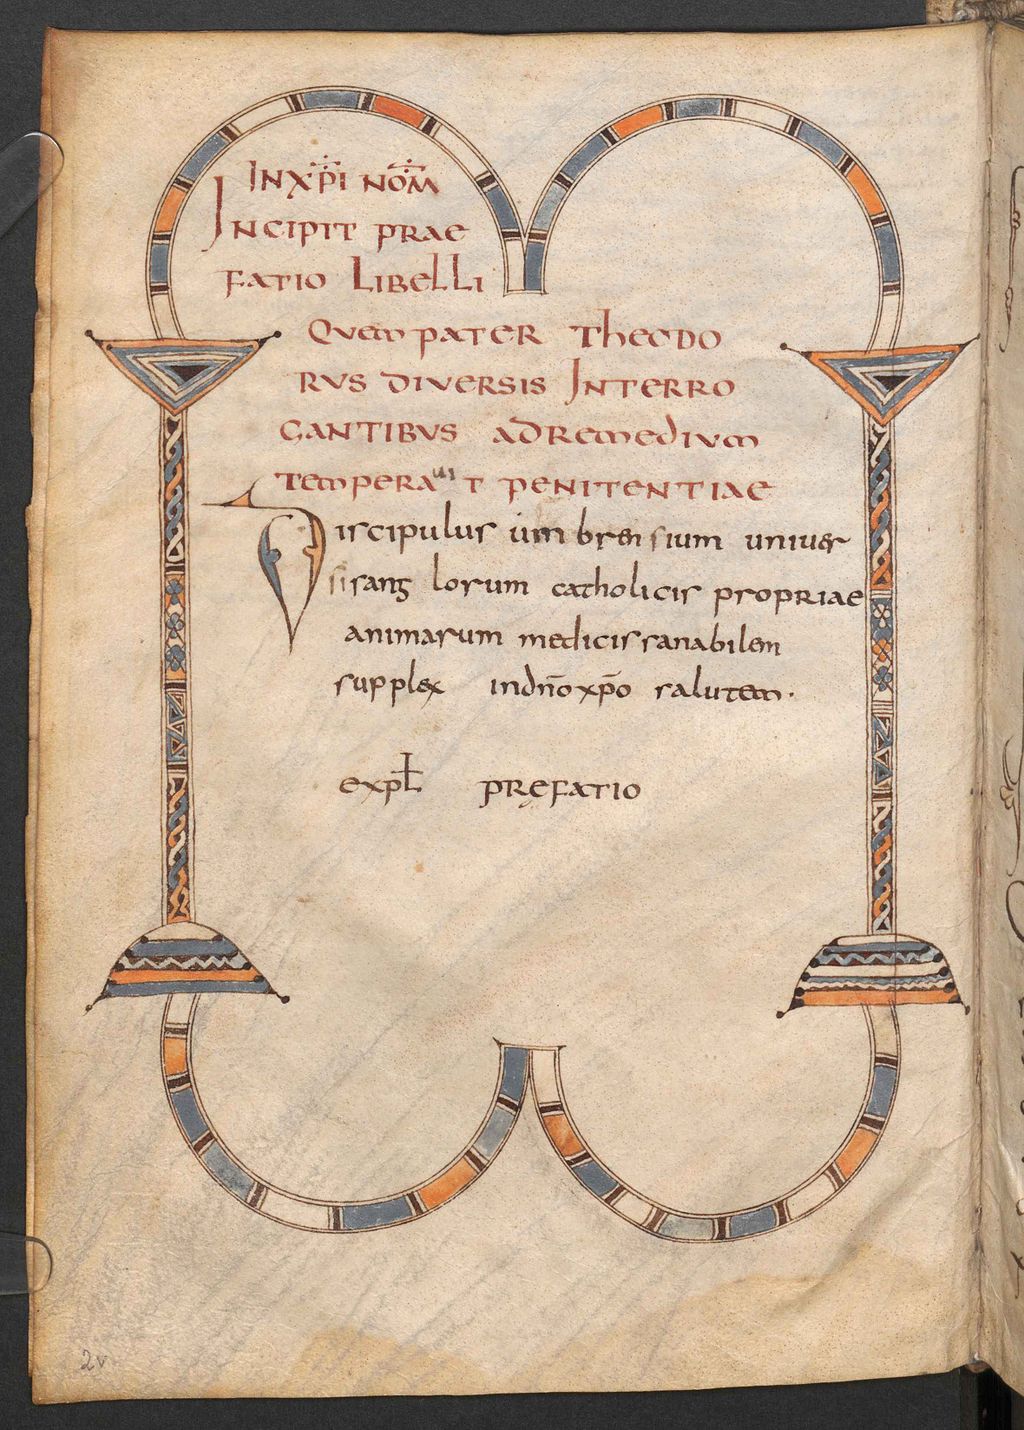 INXP̅I NOM̅
INCIPIT PRAE
FATIO LIBELLI
QUEM PATER THEODO
RVS DIVERSIS INTERRO
GANTIBVS ADREMEDIVM
TEMPERAuiT PENITENTIAE
Discipulus umbrensium univer
sis anglorum catholicis propriae
animarum medicis sanabilem
supplex indn̅o xp̅o salutem.
expƚ PREFATIO
2v